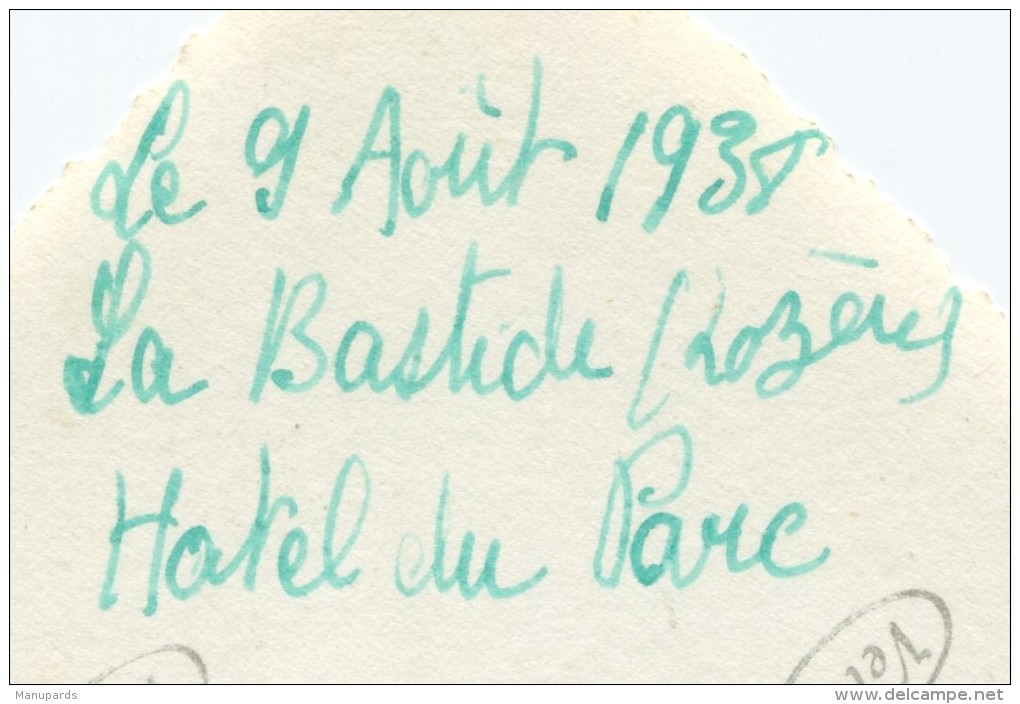 Le 9 Août 1938
La Bastide (Lozère)
Hotel du Parc
Vel
Manupards
www.delcampe.net